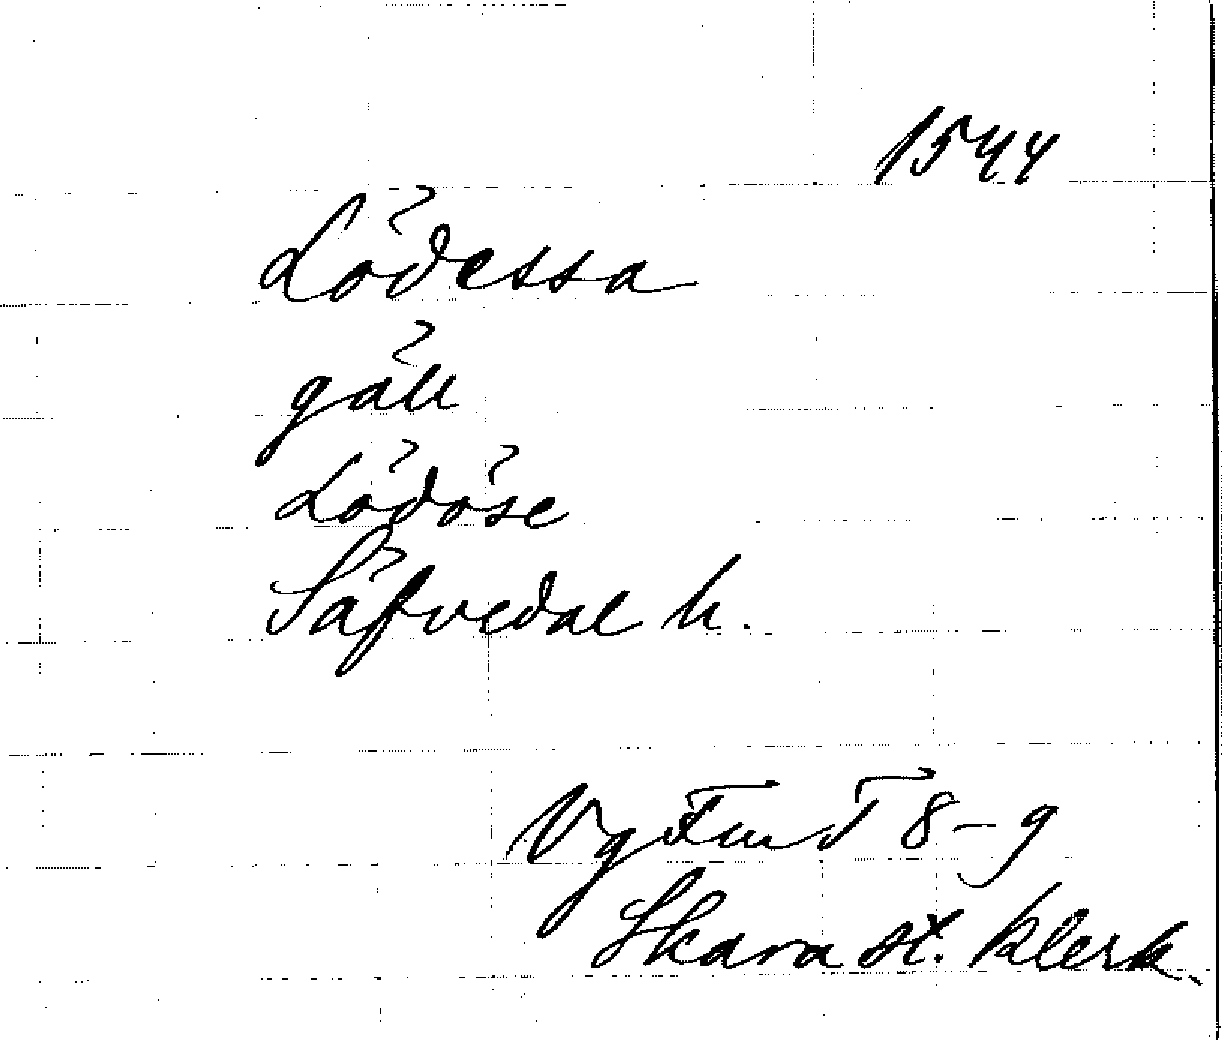 1544
Lödessa
gäll
Lödöse
Säfvedal h.
Vg Fm T 8-9
Skara st. klerk.